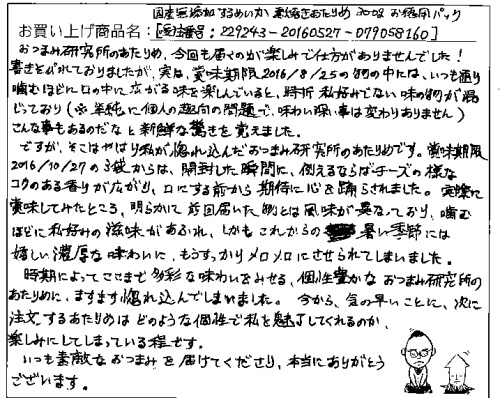 国産無添加 するめいか 素焼きあたりめ 300g お徳用パック
お買い上げ商品名：[受注番号：229243-20160527-079058160]
おつまみ研究所のあたりめ、今回も届くのが楽しみで仕方がありませんでした！
書きそびれておりましたが、実は、賞味期限2016/8/25の物の中には、いつも通り
噛むほどに口の中に広がる味を楽しんでいると、時折 私好みでない味の物が混
じっており（※単純に個人の趣向の問題で、味わい深い事は変わりありません）
こんな事もあるのだなと新鮮な驚きを覚えました。
ですが、そこはやはり私が惚れ込んだおつまみ研究所のあたりめです。賞味期限
2016/10/27の3袋からは、開封した瞬間に、例えるならばチーズの様な
コクのある香りが広がり、口にする前から期待に心を踊らされました。実際に
賞味してみたところ、明らかに前回届いた物とは風味が異なっており、噛む
ほどに私好みの滋味があふれ、しかもこれからの暑い季節には
嬉しい濃厚な味わいに、もうすっかりメロメロにさせられてしまいました。
時期によってここまで多彩な味わいをみせる、個性豊かなおつまみ研究所の
あたりめに、ますます惚れ込んでしまいました。今から、気の早いことに、次に
注文するあたりめはどのような個性で私を魅了してくれるのか、
楽しみにしてしまっている程です。
いつも素敵なおつまみを届けてくださり、本当にありがとう
ございます。